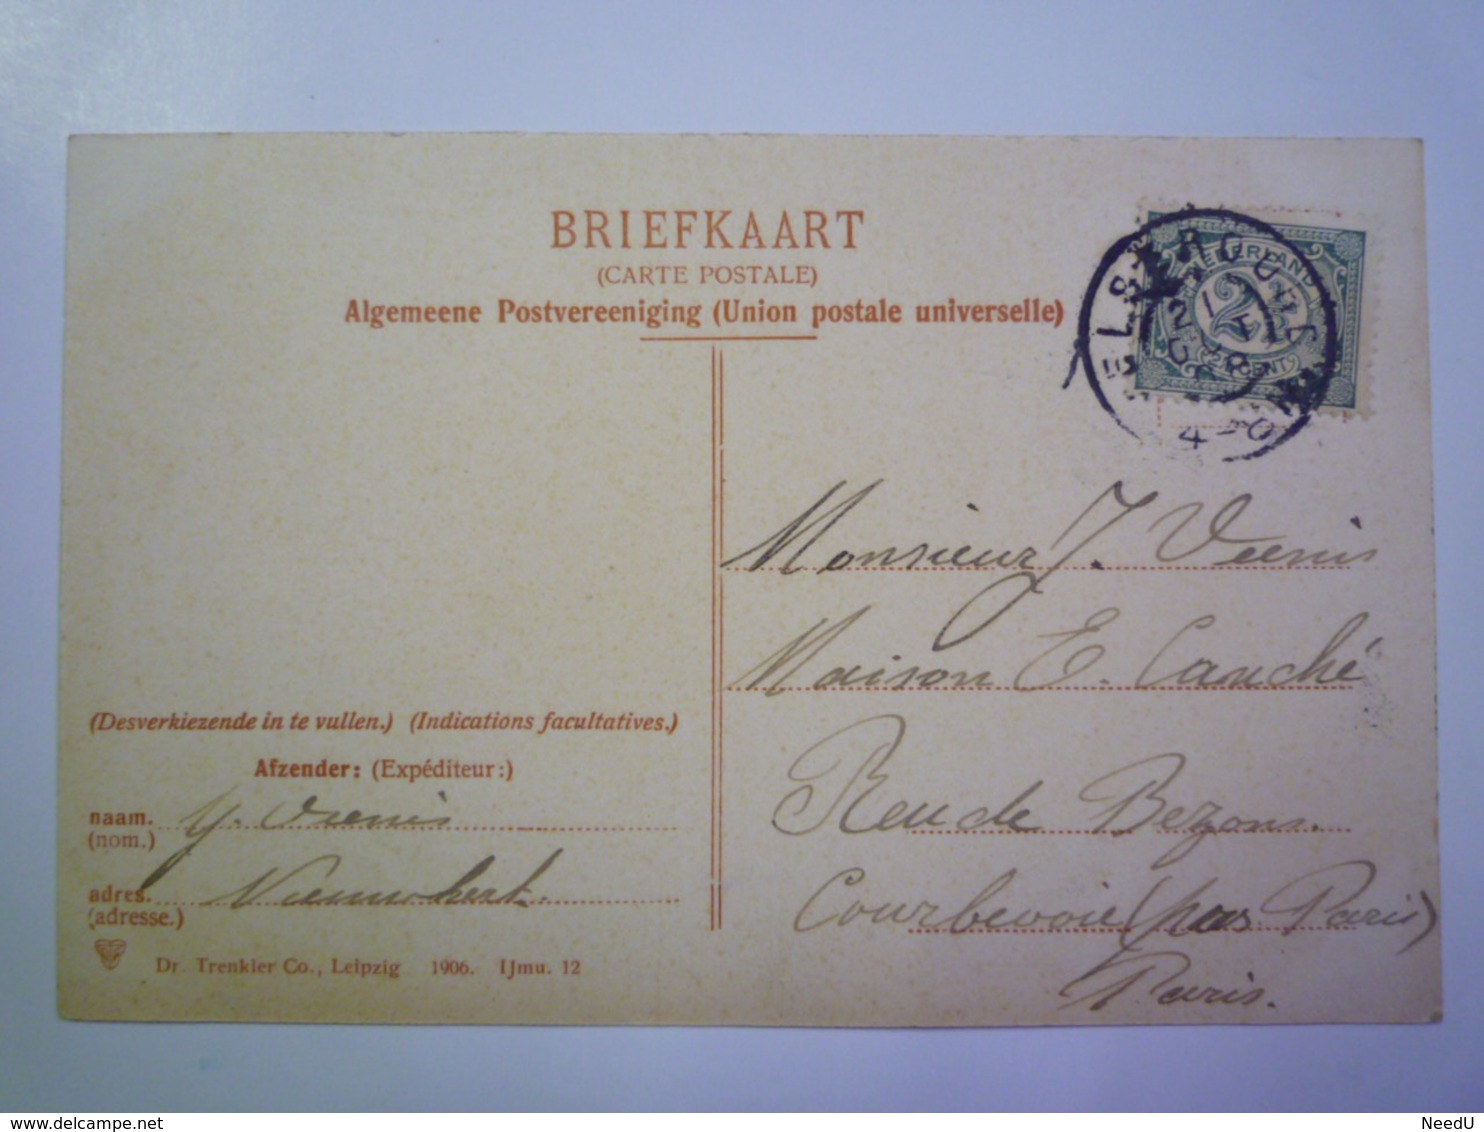 BRIEFKAART
(CARTE POSTALE)
Algemeene Postvereeniging (Union postale universelle)
NEDERLAND
2½
CENT
4-
Monsieur J. Veenis
Maison E. Cauché
Rue de Bezons.
Courbevoie (pas Paris)
Paris.
(Desverkiezende in te vullen.) (Indications facultatives.)
Afzender: (Expéditeur:)
naam.
(nom.)
Veenis
adres.
(adresse.)
Dr. Trenkler Co., Leipzig 1906. IJmu. 12
www.delcampe.net
NeedU